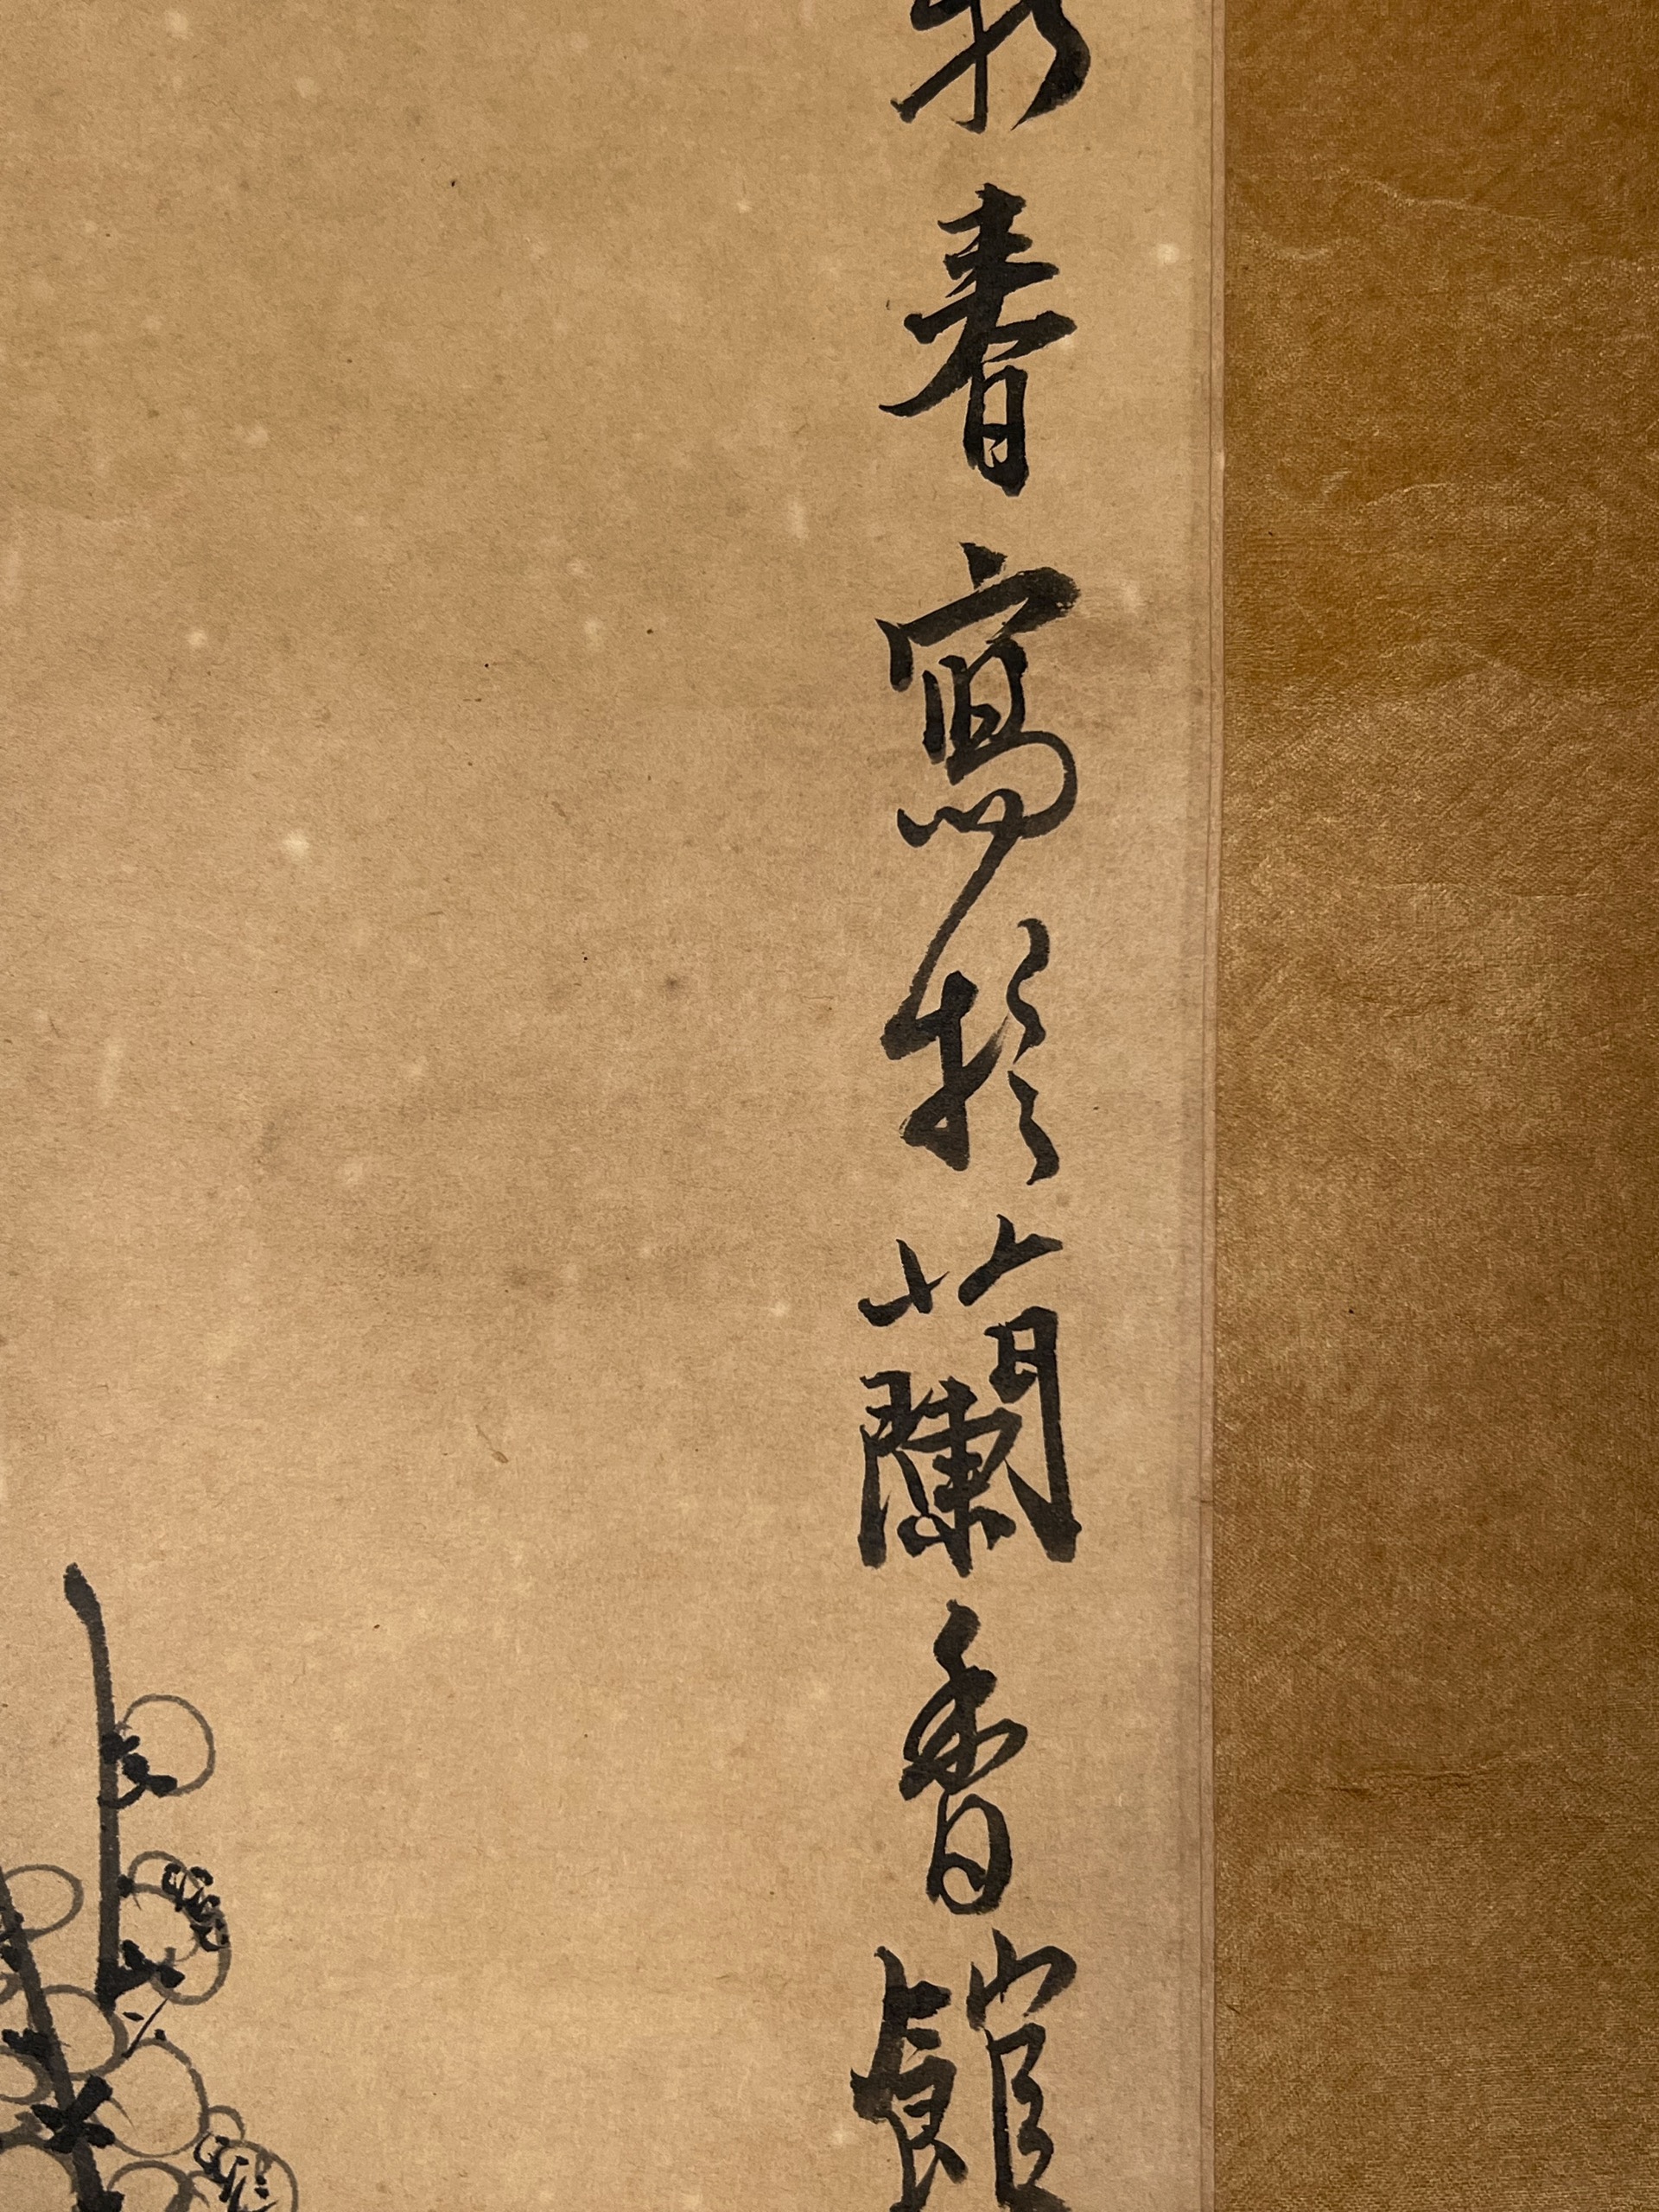 春寫於蘭香館